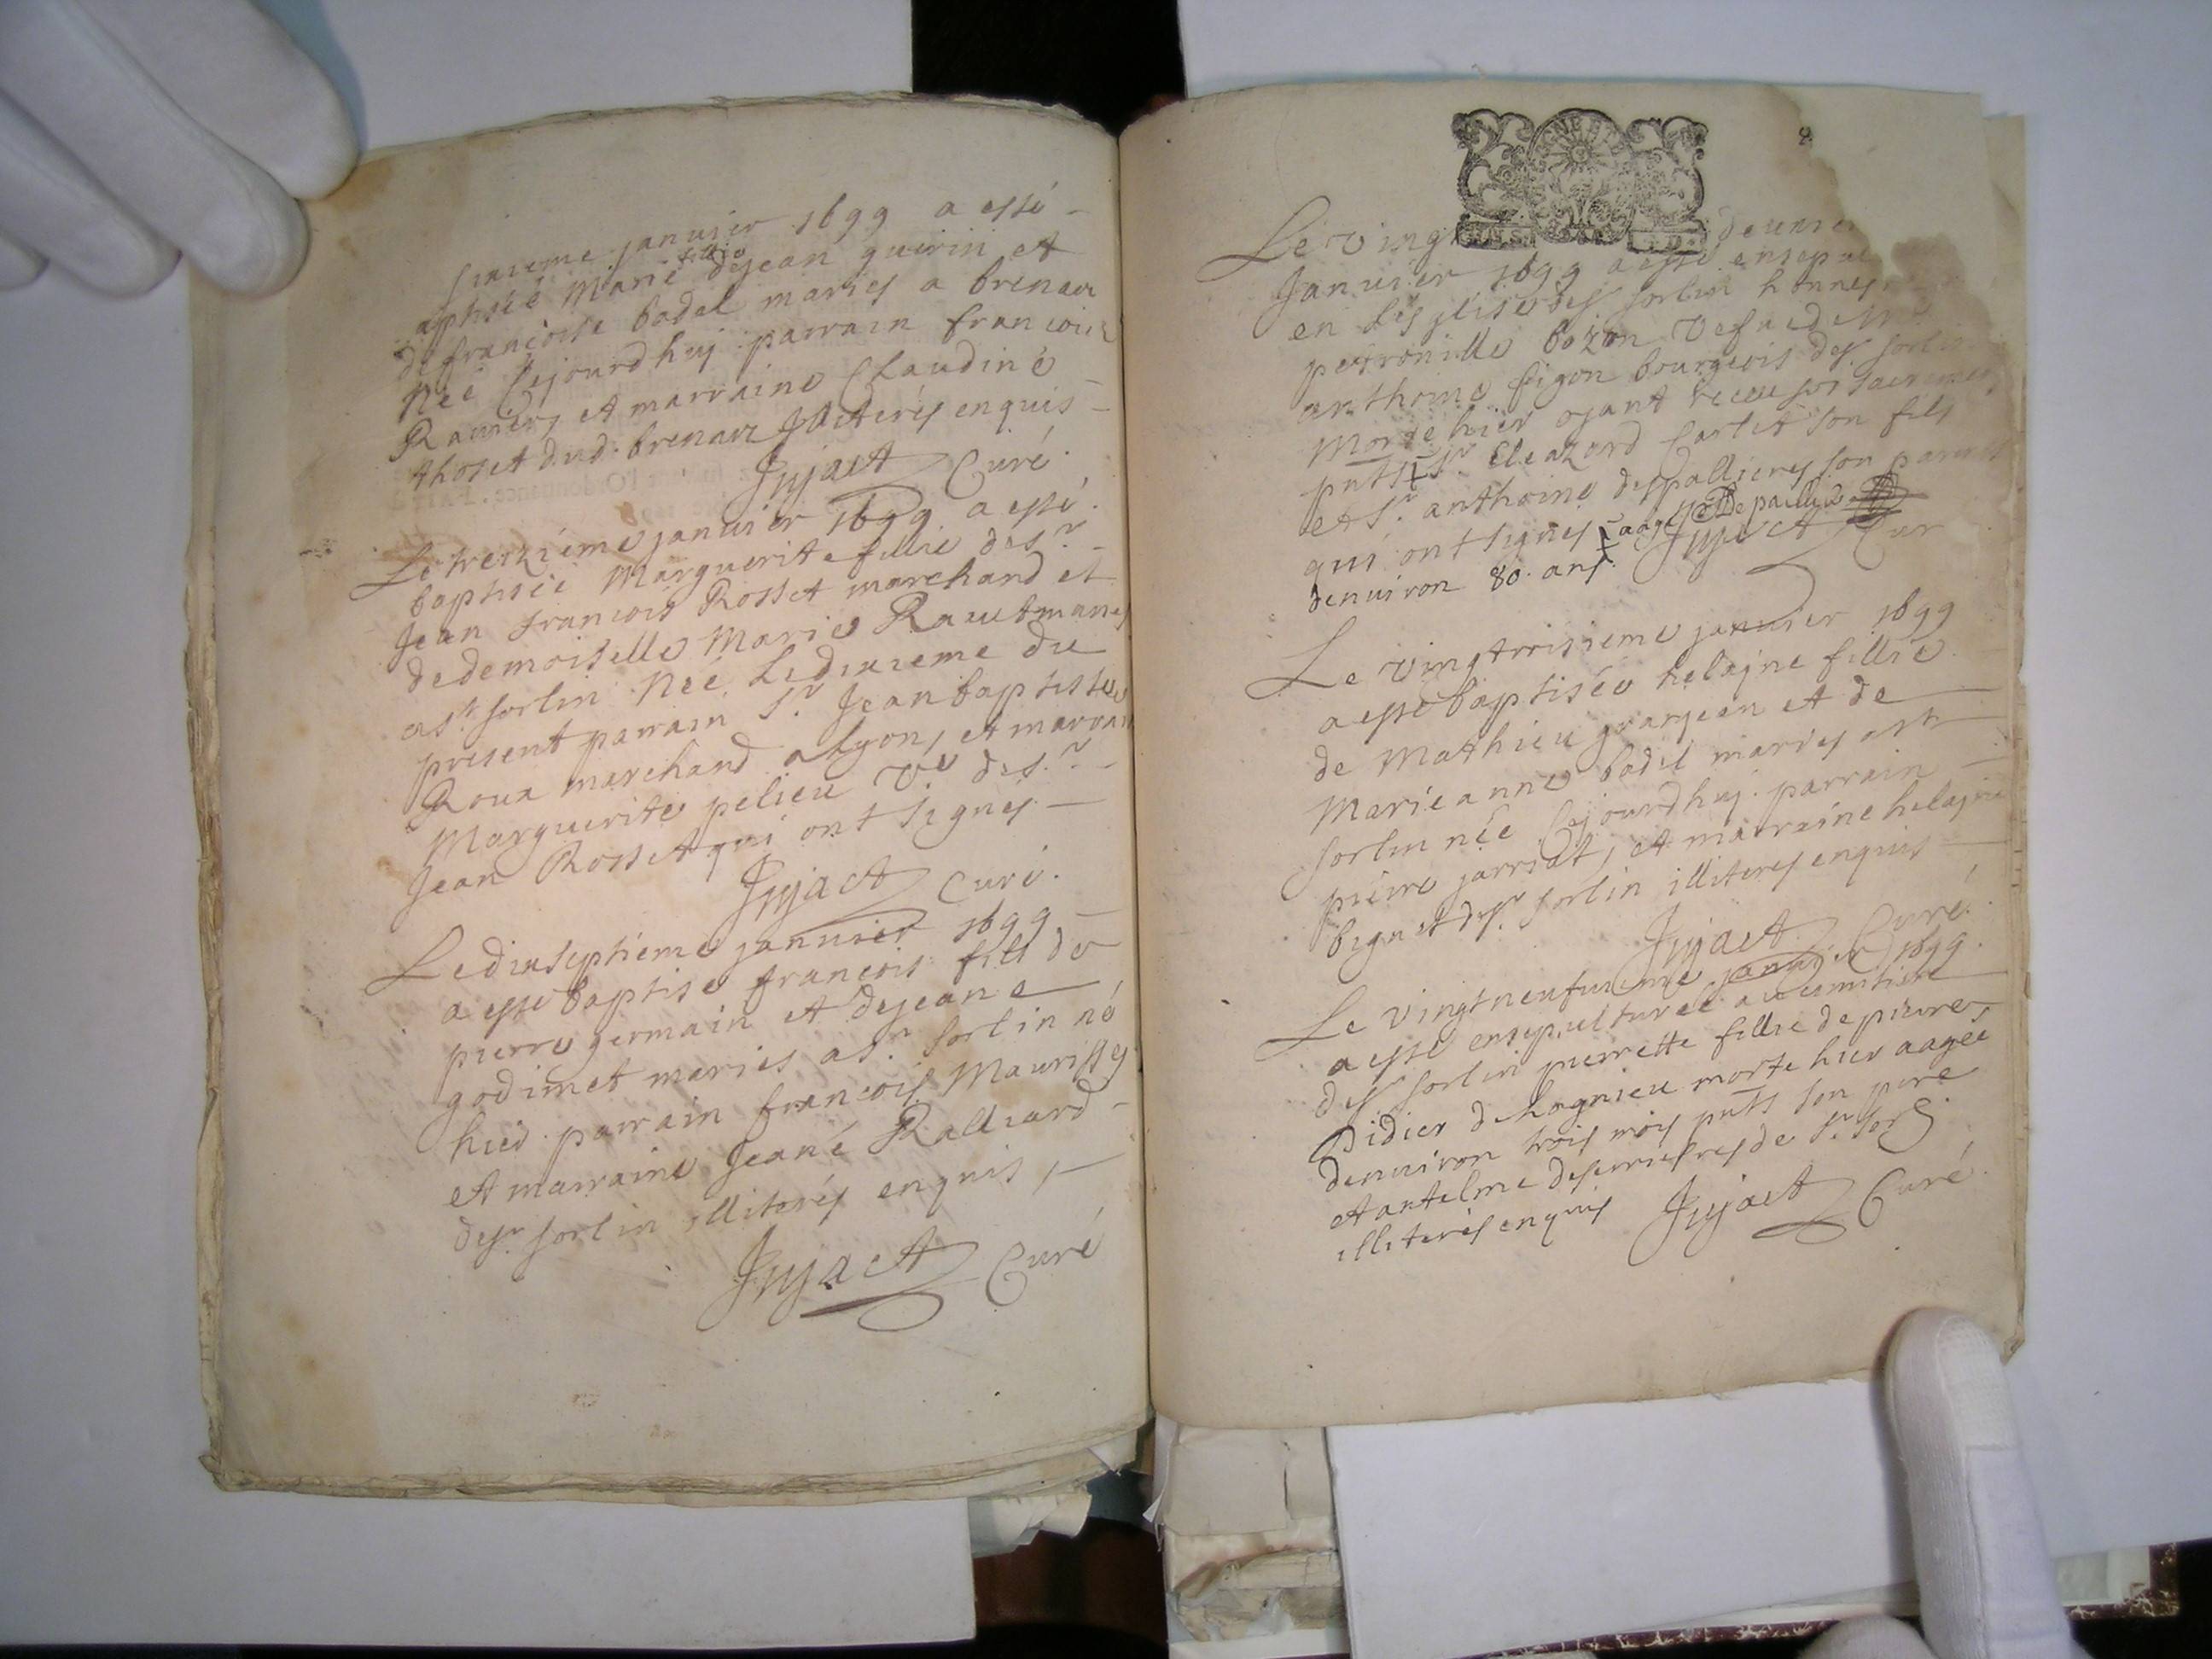 sixieme januier 1699 a esté
aptisée Marie fillie dejean guerin et
de francoise badel mariés a brenau
Née cejourdhuj parrain francois
Rauier, et marraine Claudine
thoset dud. brenaz Illiterés enquis
Jujact Curé
Le treizieme januier 1699. a esté
baptisée Marguerite fillie de sr
Jean francois Rosset marchand et
de demoiselle Marie
a st. sorlin Née Le dixieme du
present parrain sr. Jean baptiste
Roux marchand a Lyon, et marrain
Marguerite pelieu Ve de sr
Jean Rosset qui ont signés
Jujact Curé.
Ledixseptieme januier 1699
a esté baptisé francois fils de
pierre germain et dejeane
godimet mariés a st. sorlin né
hier parrain francois
et marraine Jeane Ralliard
de st. sorlin illiterés enquis,
Jujact Curé
Le vingt deuxie
Januier 1699 a esté ensepue
en Leglise de st sorlin honnes
petronille bozon Vefue de
anthoine figon bourgeois de st. sorlin
Morte hier ayant receu ses sacremen
pnts Sr Eleazard Carlet son fils
et sr. anthoine despallieres son
qui ont signés aagée Depallier
denuiron 80. ans. Jujact Cur
Le vingttroisieme januier 1699
a esté baptisée helajne fillie
de Mathieu granjean et de
Marieanne badel mariés a st
sorlin née cejourdhuj. parrain
pierre jarriat, et marraine helajne
biguet de st. sorlin illiterés enquis
Jujact Curé.
Le vingtneufuieme januier 1699.
a esté ensepulturée au cemitiere
de st sorlin pierrette fillie de pierre
Didier de hognieu morte hier aagée
denuiron trois mois pnts son pere
et antelme de st sor
illiterés enquis Jujact Curé